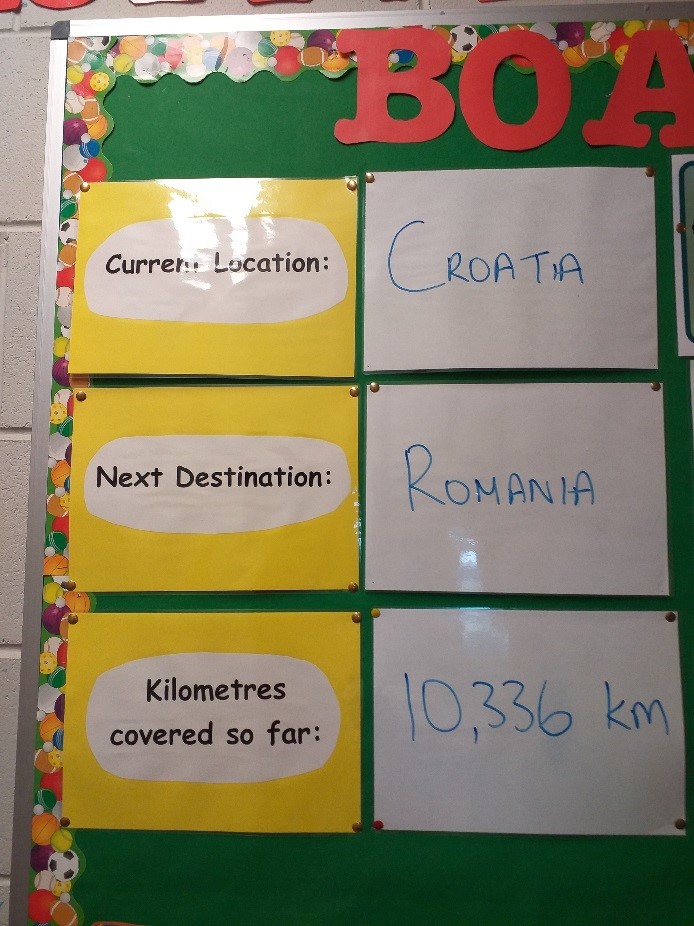 BOA
Current Location:
CROATIA
Next Destination:
ROMANIA
Kilometres
covered so far:
10,336 km